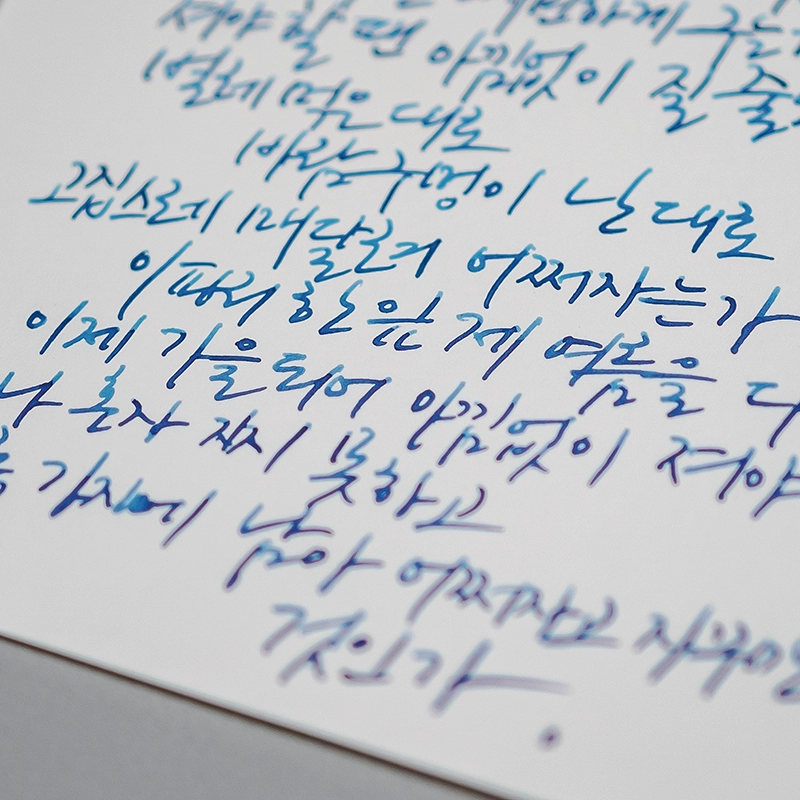 져야 할 땐 아낌없이 질 줄
벌레 먹은 대로
바람구멍이 난 대로
고집스레 매달려 어쩌자는가
이파리 한 잎 제 여름을 다
이제 가을 되어 아낌없이 져야
혼자 지지 못하고
가지에 남아 어쩌자고
것인가